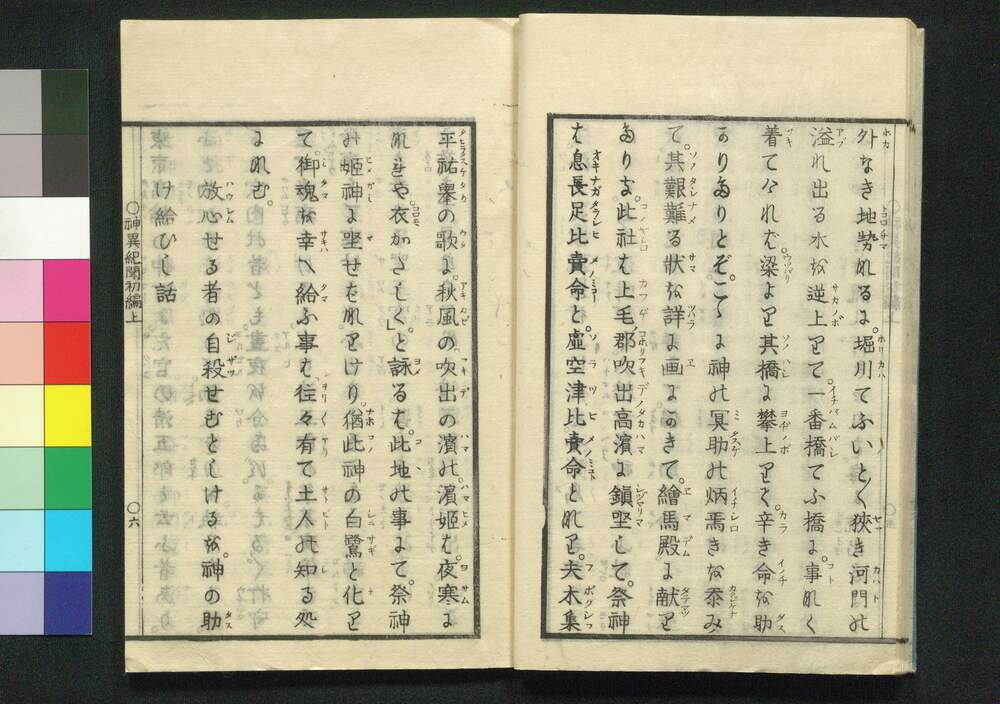 外なき地勢なるに。堀川てふいと〳〵狹き河門の
溢れ出る水の逆上りて。一番橋てふ橋に。事なく
着てけれど。梁より其橋に攀上りて。辛き命を助
かりたりとぞ。こゝに神の冥助の炳焉きを忝み
て。其艱難る狀を詳に画にかきて。繪馬殿に獻り
たりき。此社は上毛郡吹出高濱に鎭坐して。祭神
は息長足比賣命と。虛空津比賣命となり。夫木集
平祐擧の歌に。秋風の吹出の濱の。濱姫は。夜寒に
なれや衣かさしく」と詠るは。此地の事にて。祭神
み姫神に坐せばなりけり。猶此神の白鷺と化り
て。御魂を幸へ給ふ事は。往々有て。土人の知る処
になむ。
放心せる者の自殺せむとしけるを。神の助
け給ひし話
○神異紀聞初編上
○六